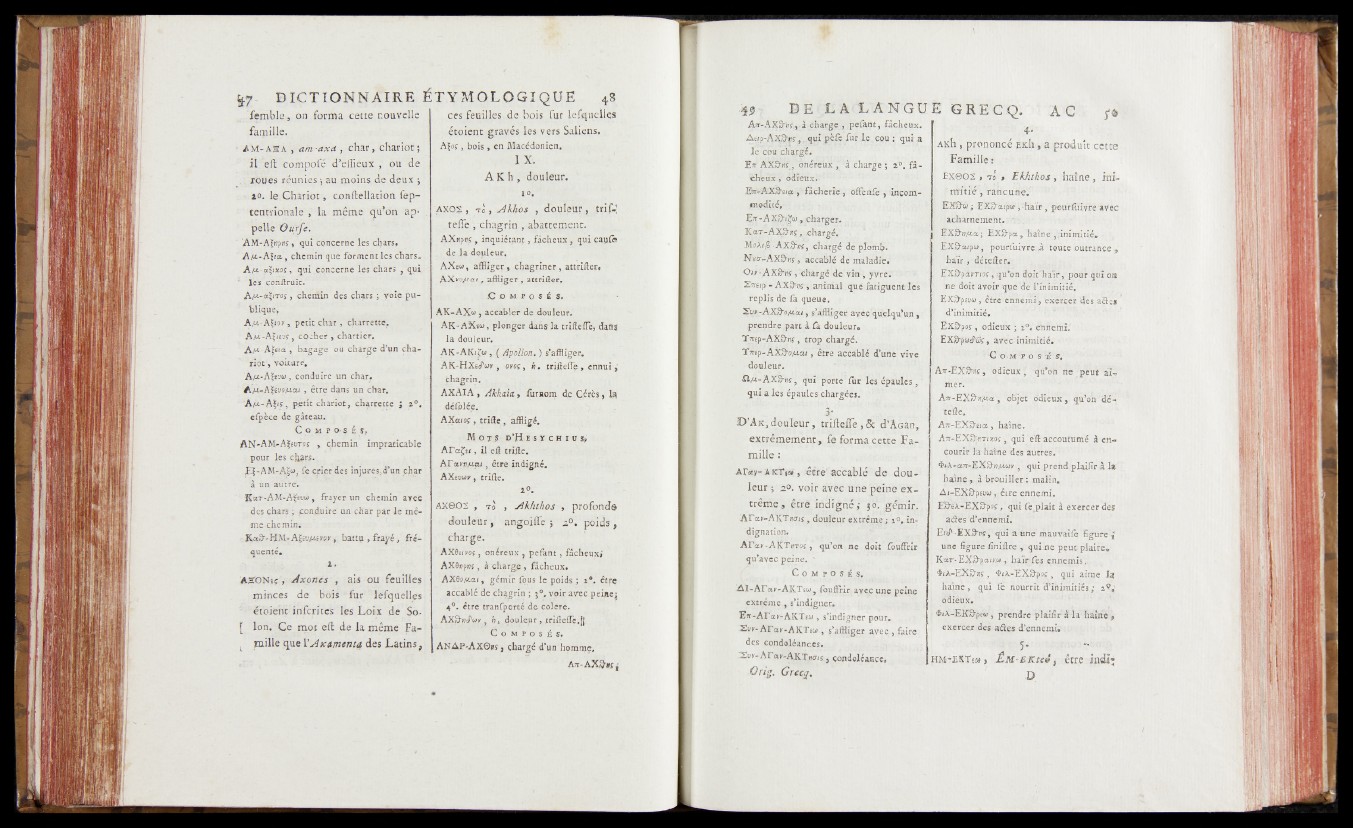 47 DICTIONNAIRE ÉTYMOLOGIQUE 48
ſemble, on forma cette nouvelle
famille.
AM-AΞA, am-axa, char, chariot;
il eſt compoſé d'eſſieux, ou de
roues réunies; au moins de deux;
2o. le Chariot, conſtellation ſep-
tentrionale, la même qu'on ap-
pelle Ourſe.
AM-Aξηρης, qui concerne les chars.
Aμ-Aξια, chemin que forment les chars.
Aμ-αξικος, qui concerne les chars, qui
les conſtruit.
Aμ-αξιτος, chemin des chars; voie pu-
blique,
Aμ-Aξιον, petit char, charrette.
Aμ-Aξευς, cocher, chartier.
Aμ-Aξεια, bagage ou charge d'un cha-
riot, voiture.
Aμ-Aξευω, conduire un char.
Aμ-Aξευομαι, être dans un char.
Aμ-Aξις, petit chariot, charrette; 2°.
eſpèce de gâteau.
COMPOSÉS.
AN-AM-Aξευτος, chemin impraticable
pour les chars.
Eξ-AM-Aξω, ſe crier des injures d'un char
à un autre.
Κατ-AM-Aξευω, frayer un chemin avec
des chars; conduire un char par le mê-
me chemin.
Καθ-HM-Aξευμενον, battu, frayé, fré-
quenté.
2.
AΞONες, Axones, ais ou feuilles
minces de bois ſur leſquelles
étoient inſcrites les Loix de So-
lon. Ce mot eſt de la même Fa-
mille que l'Axamenta des Latins,
ces feuilles de bois ſur leſquelles
étoient gravés les vers Saliens.
Aξος, bois, en Macédonien.
IX.
AKh, douleur.
1o.
AXOΣ, τὸ, Akhos, douleur, triſ-
teſſe, chagrin, abattement.
AXηρης, inquiétant, fâcheux, qui cauſe
de la douleur.
AXεω, affliger, chagriner, attriſter.
AXευμαι, affliger, attriſter.
COMPOSÉS.
AK-AXω, accabler de douleur.
AK-AXεω, plonger dans la triſteſſe, dans
la douleur.
AK-AKιζω, (Apollon.) s'affliger.
AK-HXεδων, ονος, ἡ. triſteſſe, ennui,
chagrin.
AXAIA, Akhaia, ſurnom de Cérès, la
déſolée.
AXαιος, triſte, affligé.
MOTS D'HESYCHIUS,
AΓαζει, il eſt triſte.
AΓανημαι, être indigné.
AXευων, triſte.
2°.
AXΘOΣ, τὸ, Akhthos, profonde
douleur, angoiſſe; 2°. poids,
charge.
AXθεινος, onéreux, peſant, fâcheux;
AXθηρης, à charge, fâcheux.
AXθομαι, gémir ſous le poids; 2°. être
accablé de chagrin; 3°. voir avec peine;
4°. être tranſporté de colere.
AXθηδων, ἡ, douleur, triſteſſe.
COMPOSÉS.
ANΔP-AXΘης, chargé d'un homme.
Aπ-AXθης;
49 DE LA LANGUE GRECQ. AC 50
Aπ-AXθης, à charge, peſant, fâcheux.
Δερ-AXθης, qui péſe ſur le cou; qui a
le cou chargé.
Eπ-AXθης, onéreux, à charge; 2°. fâ-
cheux, odieux.
Eπ-AXθεια, fâcherie, offenſe, incom-
modité,
Eπ-AXθιζω, charger.
Κατ-AXθης, chargé.
Μολυβ-AXθης, chargé de plomb.
Νοσ-AXθης, accablé de maladie.
Οιν-AXθης, chargé de vin, yvre.
Σπειρ-AXθης, animal que fatiguent les
replis de ſa queue.
Συν-AXθομαι, s'affliger avec quelqu'un,
prendre part à ſa douleur.
Υπερ-AXθης, trop chargé.
Υπερ-AXθομαι, être accablé d'une vive
douleur.
Ωμ-AXθης, qui porte ſur les épaules,
qui a les épaules chargées.
3.
D'Ax, douleur, triſteſſe, & d'AGAN,
extrêmement, ſe forma cette Fa-
mille:
AΓαν-AKTεω, être accablé de dou-
leur; 2o. voir avec une peine ex-
trême, être indigné; 3o. gémir.
AΓαν-AKTησις, douleur extrême; 2°. in-
dignation.
AΓαν-AKTητος, qu'on ne doit ſouffrir
qu'avec peine.
COMPOSÉS.
ΔI-AΓαν-AKTεω, ſouffrir avec une peine
extrême, s'indigner.
Eπ-AΓαν-AKTεω, s'indigner pour.
Συν-AΓαν-AKTεω, s'affliger avec, faire
des condoléances.
Συν-AΓαν-AKTησις, condoléance.
Orig. Grecq.
4.
AKh, prononcé EKh, a produit cette
Famille:
EXΘOΣ, τὸ, Ekhthos, haîne, ini-
mitié, rancune.
EXθω; EXθαιρω, haïr, pourſuivre avec
acharnement.
EXθημα; EXθρα, haîne, inimitié.
EXθαιρω, pourſuivre à toute outrance,
haïr, déteſter.
EXθραντιος, qu'on doit haïr, pour qui on
ne doit avoir que de l'inimitié.
EXθρευω, être ennemi, exercer des actes
d'inimitié.
EXθρος, odieux; 2°. ennemi.
EXθρωδως, avec inimitié.
COMPOSÉS.
Aπ-EXθης, odieux, qu'on ne peut ai-
mer.
Aπ-EXθημα, objet odieux, qu'on dé-
teſte.
Aπ-EXθεια, haîne.
Aπ-EXθητικος, qui eſt accoutumé à en-
courir la haîne des autres.
Φιλ-απ-EXθημων, qui prend plaiſir à la
haîne, à brouiller: malin.
Δι-EXθρευω, être ennemi.
Εθελ-EXθρος, qui ſe plaît à exercer des
actes d'ennemi.
Ειδ-EXθης, qui a une mauvaiſe figure;
une figure ſiniſtre, qui ne peut plaire.
Κατ-EXθραινω, haïr ſes ennemis.
Φιλ-EXθης, Φιλ-EXθρος, qui aime la
haîne, qui ſe nourrit d'inimitiés; 2°.
odieux.
Φιλ-EXθρεω, prendre plaiſir à la haîne,
exercer des actes d'ennemi.
5.
HM-EKTεω, ÊM-EKteô, être indi-
D